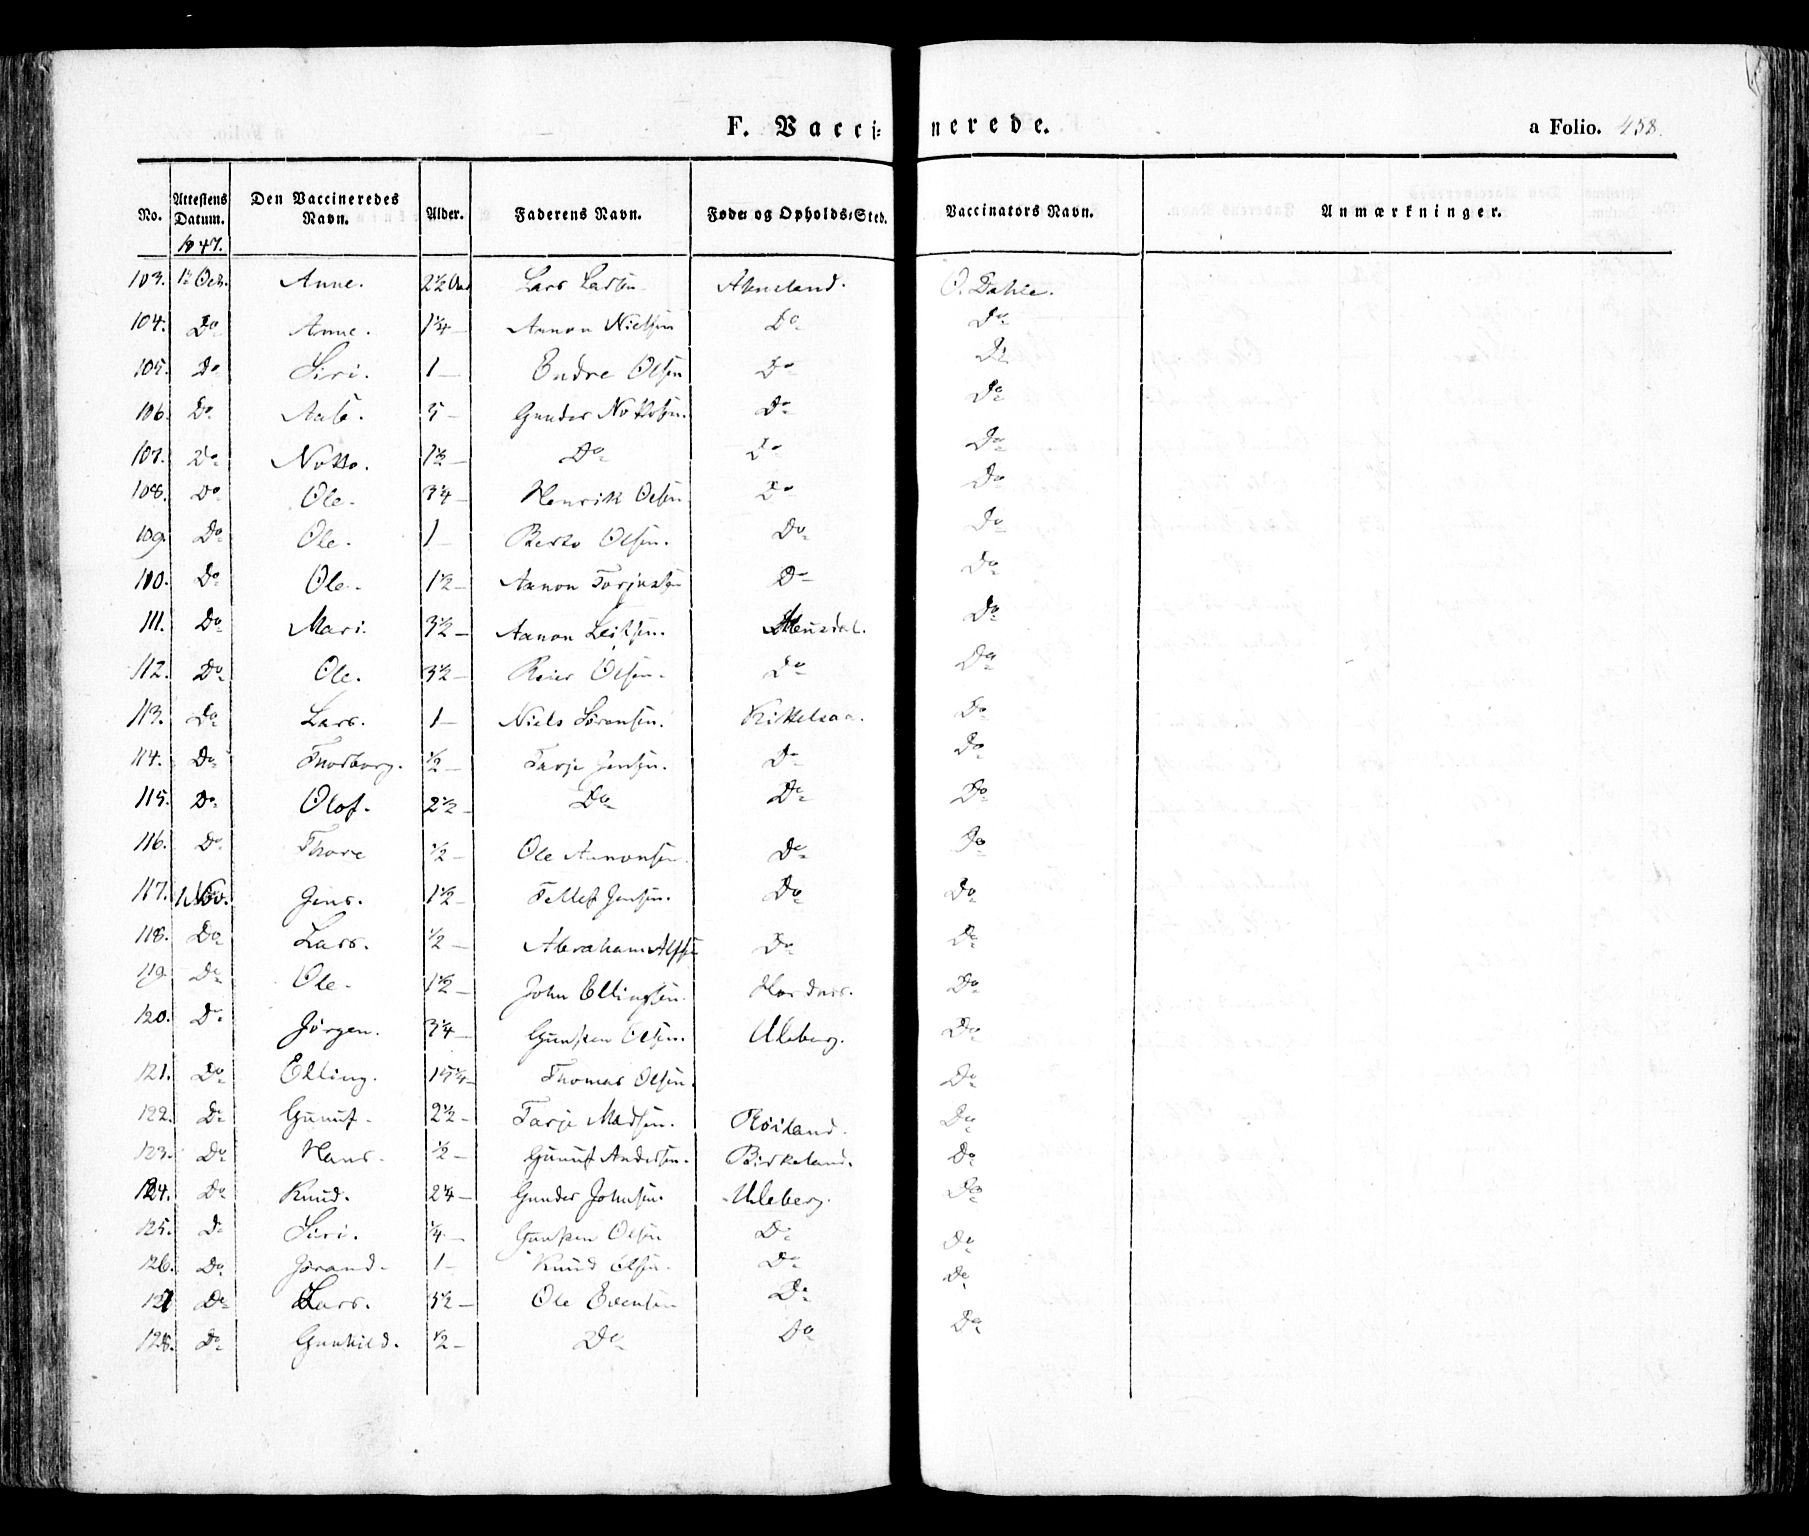 F. Vacci- nerede. a Folio. 458.
No. Attestens Datum. Den Vaccineredes Navn. Alder. Faderens Navn. Føde og Opholds-Sted. Vaccinators Navn. Anmærkninger.
1847.
103. 1 Octb. Anne. 2½ Lars Larsen Akneland. O. Dahle.
104. Do Anne. 1¾ Aanon Nielsen Do Do
105. Do Siri. 1 Endre Olsen Do Do
106. Do 5 Gunder Do Do
107. Do Notto. 1½ Do Do Do
108. Do Ole. 3¼ Henrik Olsen Do Do
109. Do Ole. 1 Olsen. Do Do
110. Do Ole. 1½ Aanon Do Do
111. Do Mari. 3½ Aanon Do
112. Do Ole. 3½ Reier Olsen. Do Do
113. Do Lars. 1 Niels Sørensen. Kittelsaa. Do
114. Do Thorborg. ½ Tarje Jensen. Do Do
115. Do Olof. 2½ Do Do Do
116. Do Thore ½ Ole Aanonsen Do Do
117. 1 Nov. Jens. 1½ Tellef Jensen. Do Do
118. Do Lars. ½ Abraham Do Do
119. Do Ole. 1½ John Ellingsen. Do
120. Do Jørgen. 3¼ Olsen. Uleberg. Do
121. Do Elling. Thomas Olsen. Do
122. Do Gunuf. 2½ Tarje Madsen. Røiland. Do
123. Do Hans. ½ Gunuf Andersen. Birkeland. Do
124. Do Knud. 2¼ Gunder Johnsen. Uleberg. Do
125. Do Siri. ¼ Olsen Do Do
126. Do Jorand. 1 Knud Olsen. Do Do
127 Do Lars. Ole Evensen Do Do
128. Do Gunhild. ½ Do Do